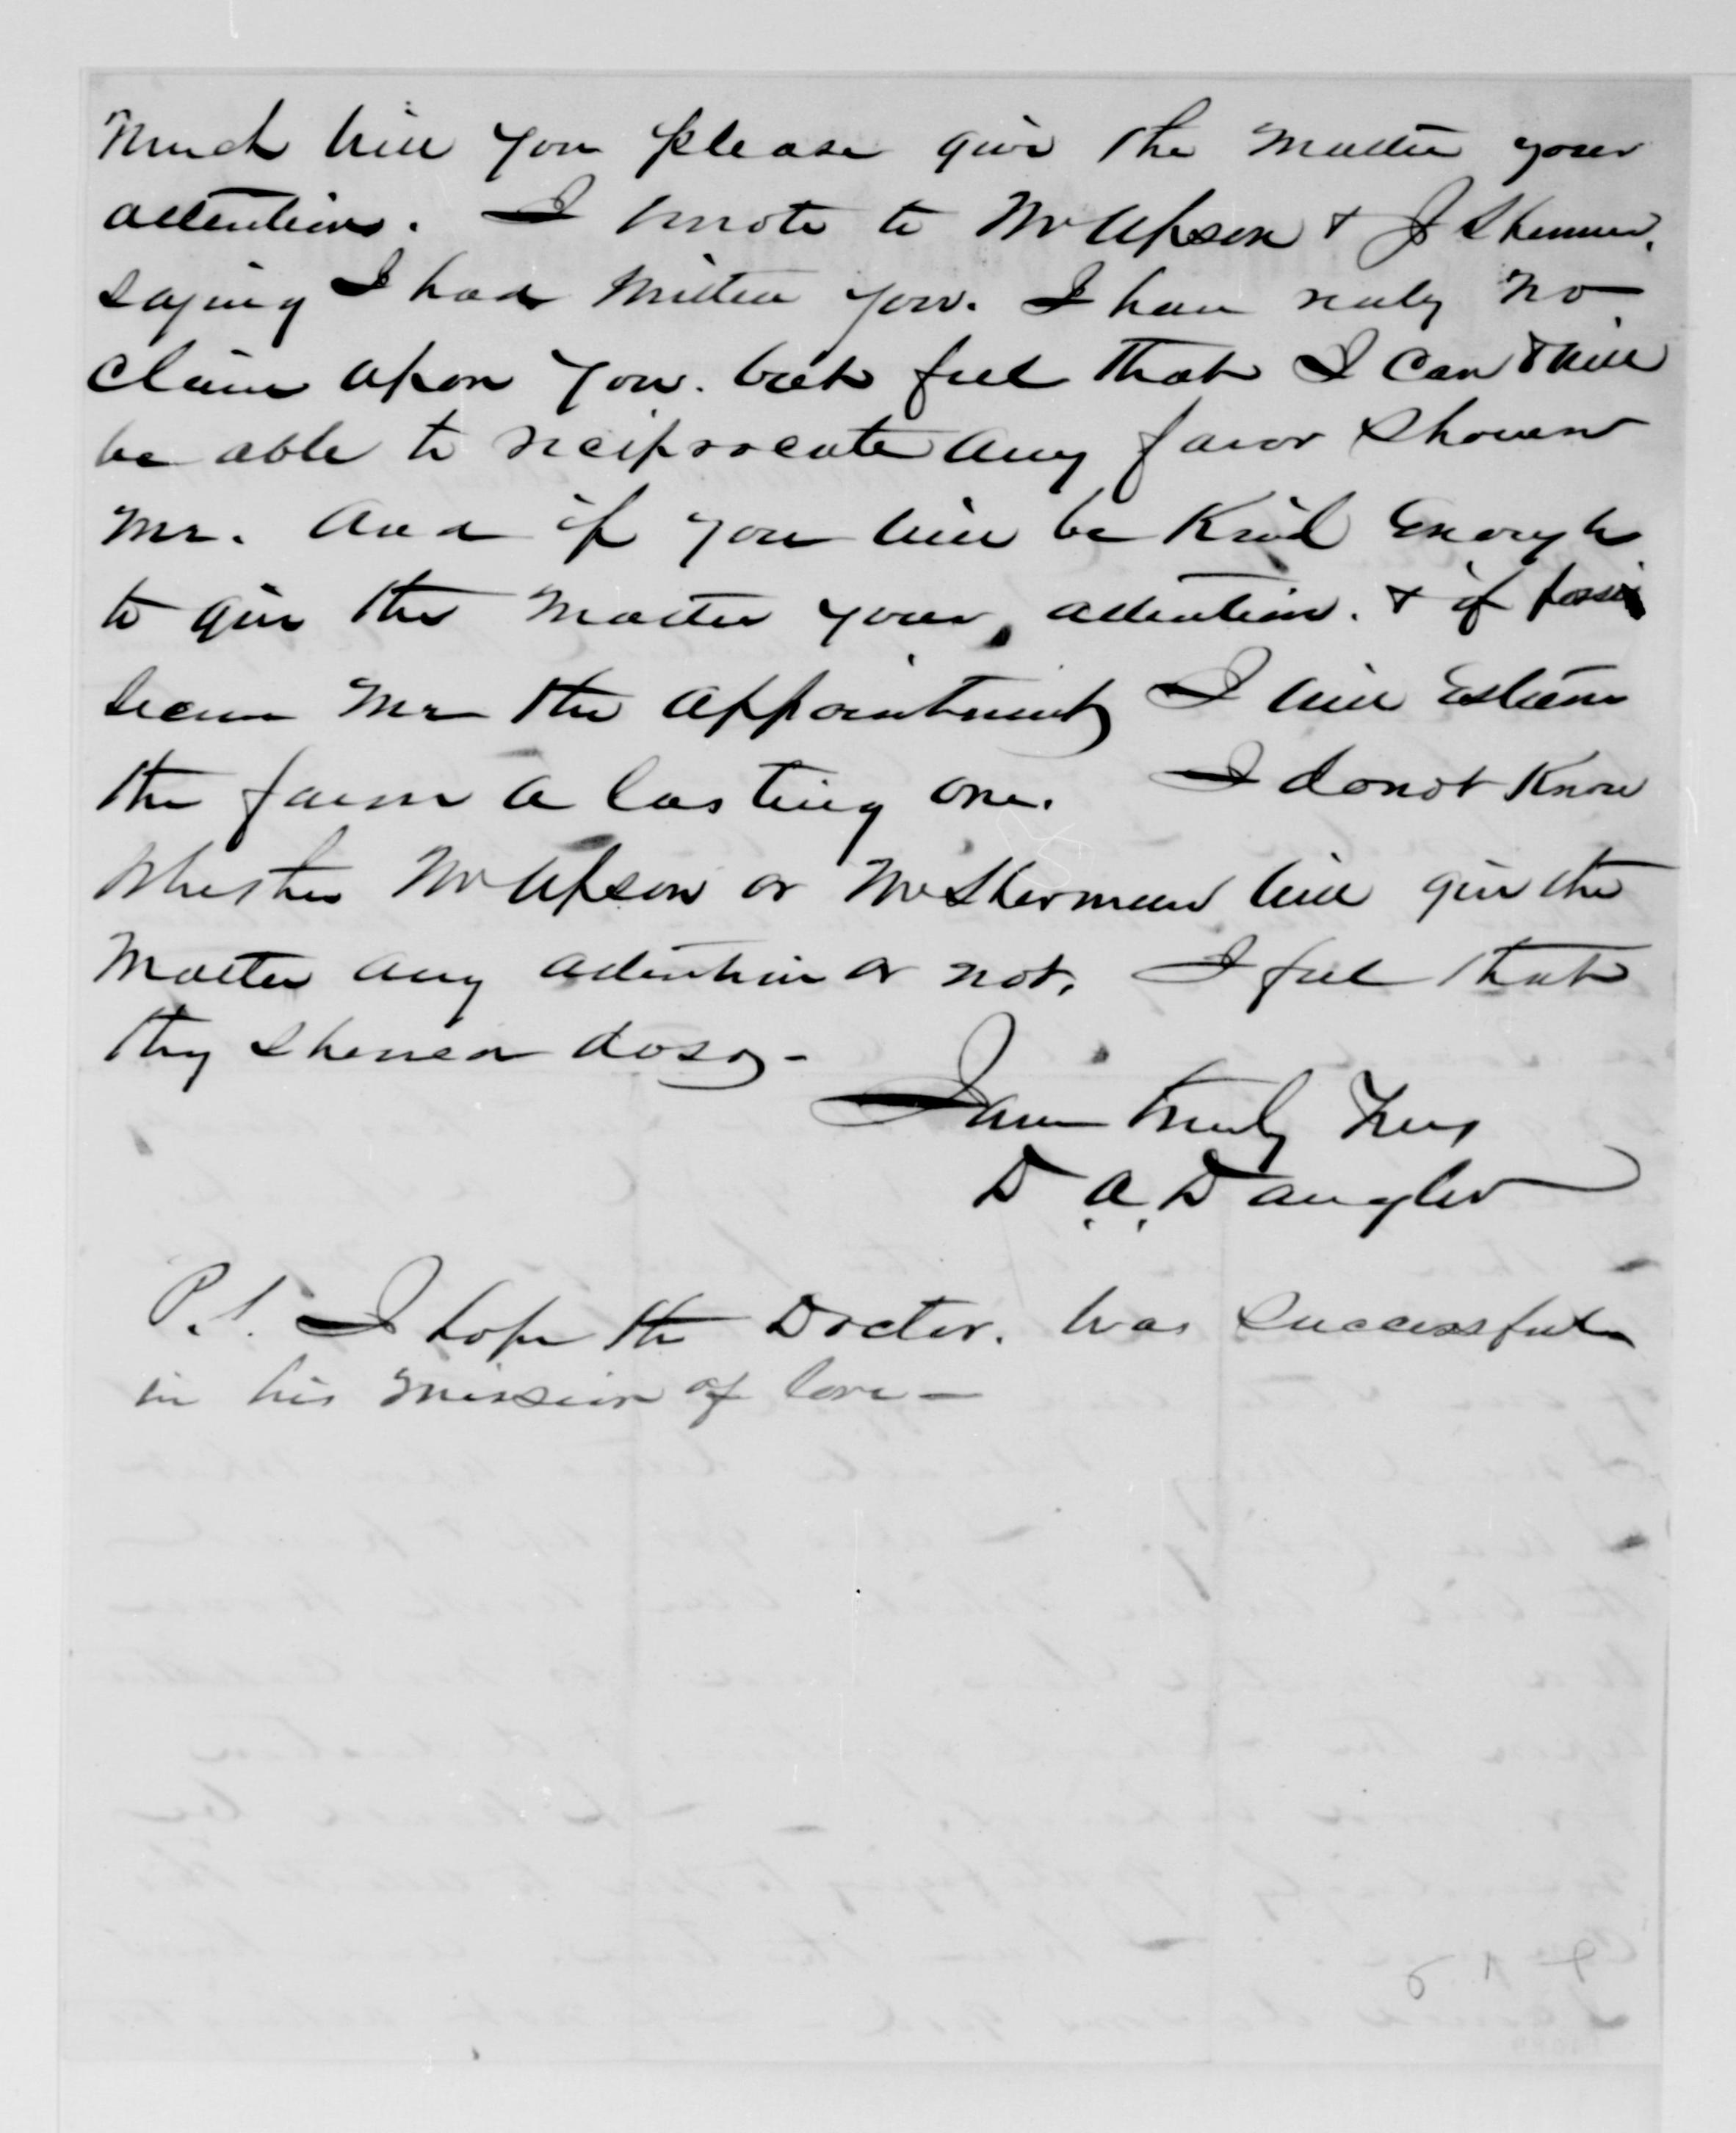 Much will you please give the matter your
attention. I wrote to Mr Upson & J Sherman.
saying I had written you. I have realy no
claim upon you. but feel that I can & will
be able to reciprocate any favor shown
me. And if you will be kind enough
to give the matter your attention. & if possi
secure me the appointment I will esteem
the favor a lasting one. I do not know
whether Mr Upson or Mr Sherman will give the
matter any attention or not. I feel that
they should do so -
I am truly Yours
D. A. Dangler
P.S. I hope the Doctor. was successful
in his mission of love -